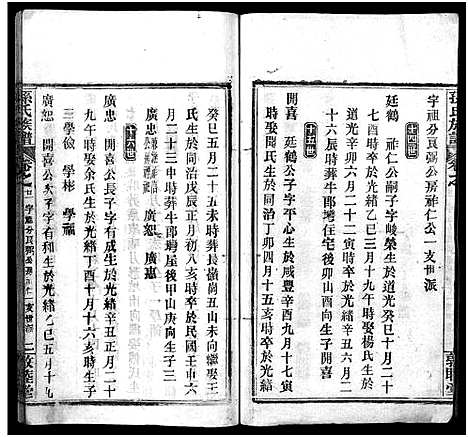 孫氏族譜
字祖分貢弼公房祚仁公一支世派
十四世
廷鶴 祚仁公嗣子字峻榮生於道光癸巳十二月二十
七酉時歿於光緒乙巳三月十七辰時娶楊氏生於
道光辛卯六月二十六寅時歿於光緒辛丑六月二
十六辰時葬牛郎壋住宅後卯山酉向生子開喜
十五世
開喜 廷鶴公子字平心生於咸豐辛酉九月十七寅
時娶閻氏生於同治丁卯四月十五亥時卒於光緒
敦睦堂
癸巳五月二十五未時葬長嶺崗丑山未向繼娶王
氏生於同治戊辰正月初六亥時歿於民國壬申六
月二十三申時葬牛郎壋屋後甲山庚向生子三
廣忠 廣恕 廣惠
十六世
廣忠 開喜公長子字有成生於光緒辛丑正月二十
九午時娶余氏生於光緒丁酉十月十六亥時生子
三學儉 學彬 學福
廣恕 開喜公次子字有和生於光緒乙巳五月十九
孫氏族譜
字祖分貢弼公房祚仁公一支世派
二敦睦堂